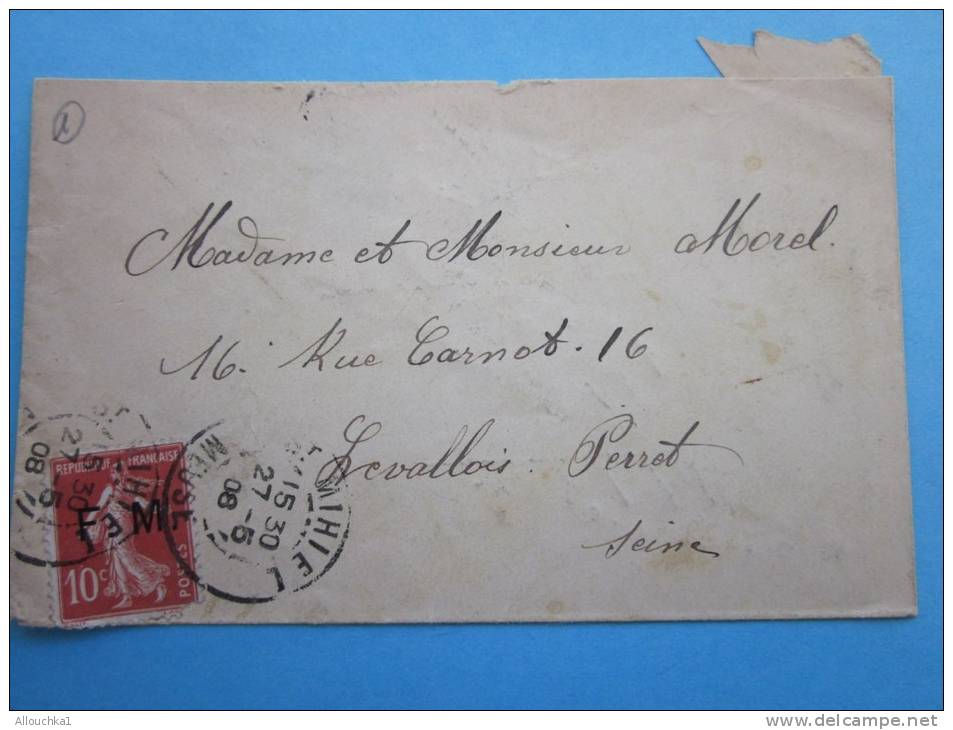 1
Madame et Monsieur Morel.
16. Rue Carnot. 16
Levallois Perret
Seine
REPUBLIQUE FRANÇAISE
F M
10c
POSTES
MIHIEL
15 30
27 - 5
08
MEUSE
MIHIEL
15 30
27 5
08
Allouchka1
www.delcampe.net